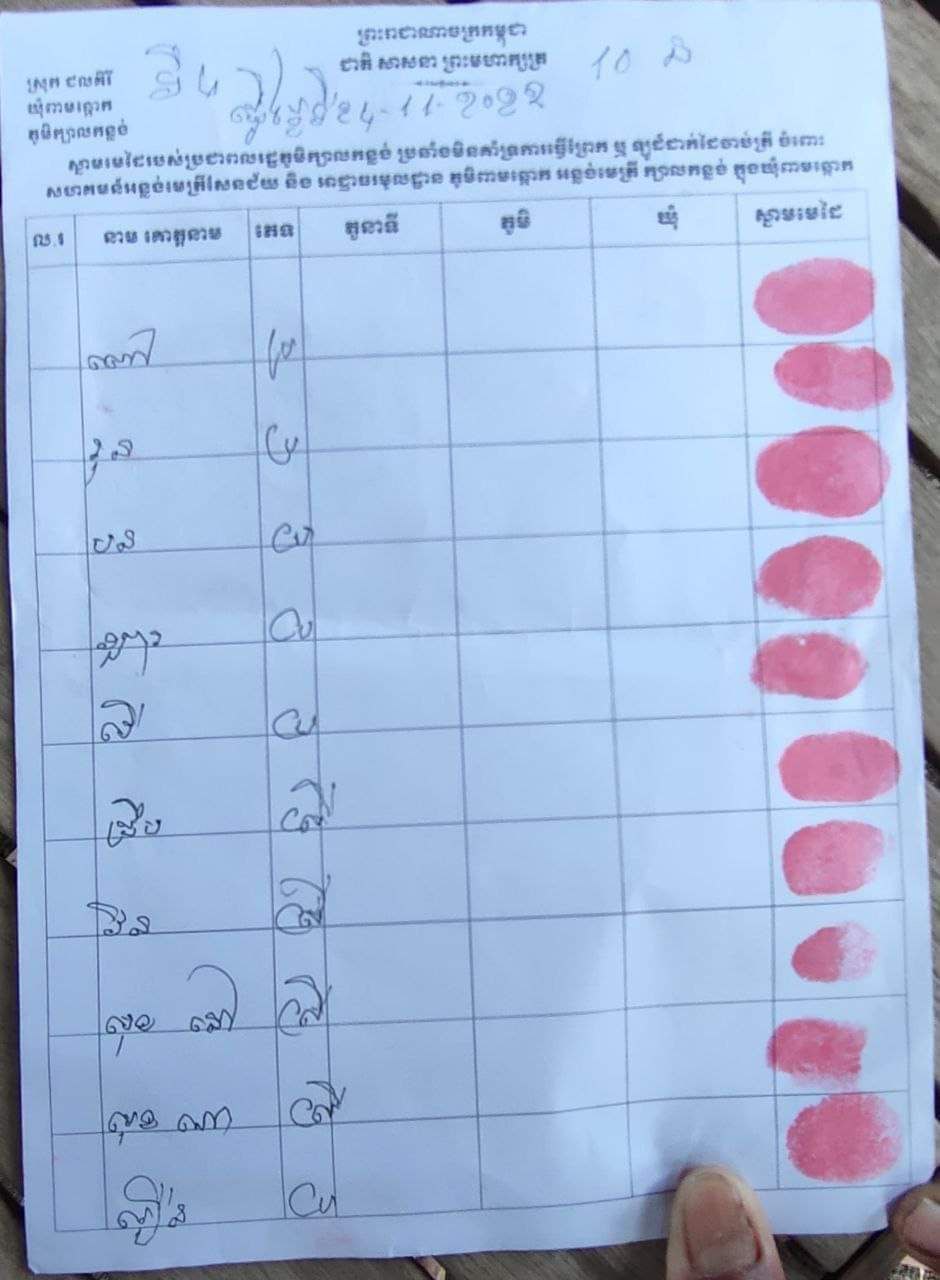 ព្រះរាជាណាចក្រកម្ពុជា
ជាតិ សាសនា ព្រះមហាក្សត្រ
10 ន
ស្រុក ជលគិរី
ឃុំពាមខ្នោក
ភូមិក្បាលកន្លង់
ទី 4
ថ្ងៃទី 24-11-2022
ស្នាមមេដៃរបស់ប្រជាពលរដ្ឋភូមិក្បាលកន្លង់ ប្រឆាំងមិនគាំទ្រការធ្វើព្រែក ឬ ឡូដ៍ដាក់ដៃចាប់ត្រី ចំពោះ
សហគមន៍អន្លង់មេត្រីសែនជ័យ និង អាជ្ញាធរមូលដ្ឋាន ភូមិពាមខ្នោក អន្លង់មេត្រី ក្បាលកន្លង់ ក្នុងឃុំពាមខ្នោក
ល.រ នាម គោត្តនាម ភេទ តួនាទី ភូមិ ឃុំ ស្នាមមេដៃ
ណៅ ប្រ
ខុន ប្រ
បន ប្រ
ប្រ
សី ប្រ
ជឿប ស្រី
វិន ស្រី
សុខ ដៅ ស្រី
សុខ ណា ស្រី
ប្រ